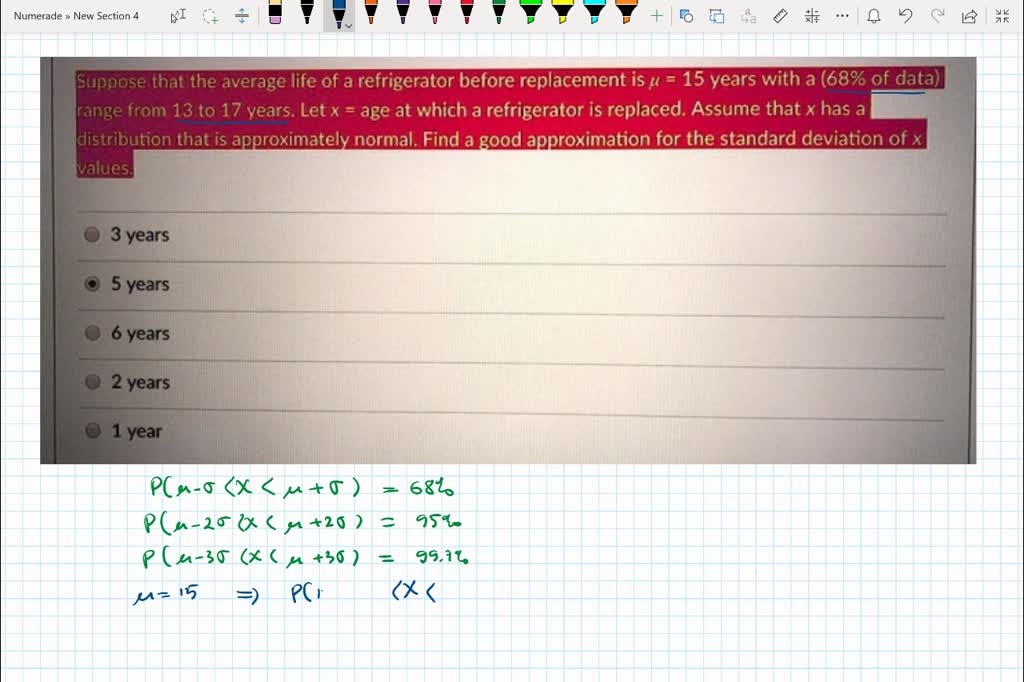 Numerade » New Section 4
Suppose that the average life of a refrigerator before replacement is μ = 15 years with a (68% of data)
range from 13 to 17 years. Let x = age at which a refrigerator is replaced. Assume that x has a
distribution that is approximately normal. Find a good approximation for the standard deviation of x
values.
3 years
5 years
6 years
2 years
1 year
P(μ-σ<X<μ+σ) = 68%
P(μ-2σ<X<μ+2σ) = 95%
P(μ-3σ<X<μ+3σ) = 99.7%
μ=15 ⇒ P(1 <X<